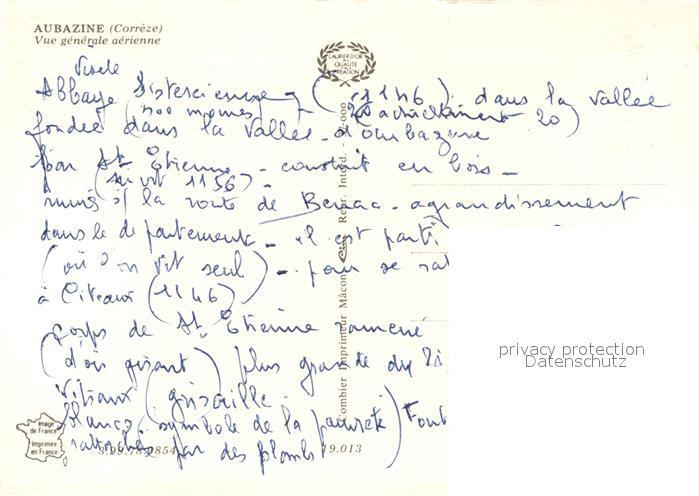 AUBAZINE (Corrèze)
Vue générale aérienne
LAURIER D'OR
DE LA
QUALITÉ
CRÉATION
Visite
Abbaye Cistercienne (1146) dans la vallée
(100 moines actuellement 20)
fondée dans la vallée d'Aubazine
par St Etienne - construit en bois -
(suivit 1156) -
murs s/ la route de - agrandissement
dans le departement - il est parti
(où l'on vit seul) - pour se rat
à Citeaux (1146)
corps de St Etienne ramené
(d'où gisant) plus grande du Li
Vitraux (grisaille
blancs symbole de la pauvreté) Tout
rattachés par des plombs
Combier Imprimeur Mâcon Repr. Interd.
Image
de France
Imprimée
en France
3.99.78.0854
19.013
privacy protection
Datenschutz